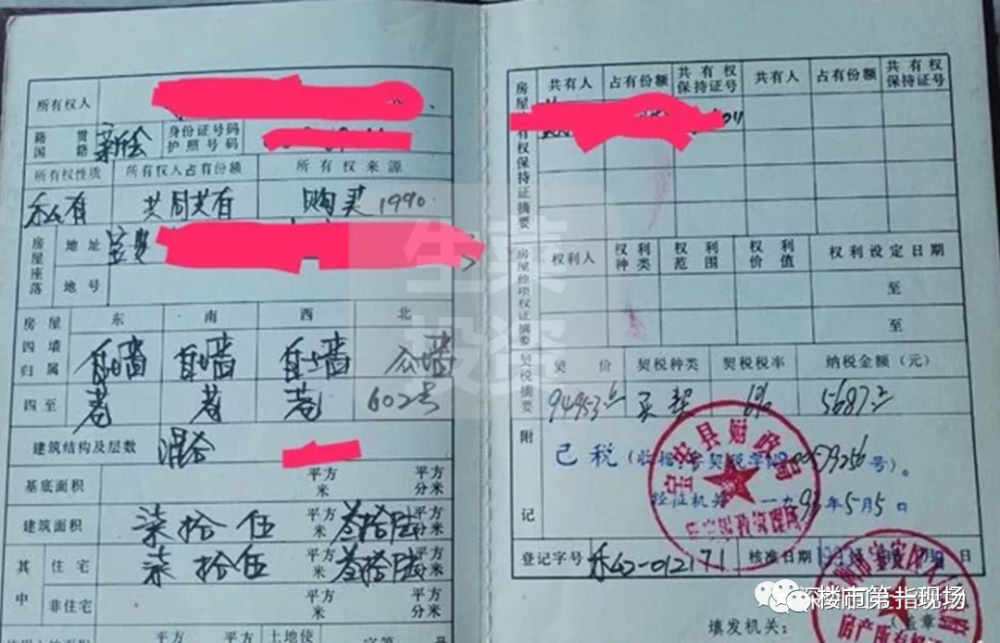 所有权人
籍贯 国籍 新会 身份证号码 护照号码
所有权性质 所有权人占有份额 所有权来源
私有 共同共有 购买1990.
房屋座落 地址 宝安
地号
房屋四墙归属 东 南 西 北
自墙 自墙 自墙 公墙
四至 巷 巷 巷 602号
建筑结构及层数 混合
基底面积 平方米 平方分米
建筑面积 柒拾伍 平方米 叁拾陆 平方分米
其中 住宅 柒拾伍 平方米 叁拾陆 平方分米
非住宅 平方米 平方分米
平方 平方 土地使
房屋共有权保持证摘要 共有人 占有份额 共有权保持证号 共有人 占有份额 共有权保持证号
房屋他项权证摘要 权利人 权利种类 权利范围 权利价值 权利设定日期
至
至
契税摘要 契价 契税种类 契税税率 纳税金额(元)
买契 6%
附记
已税(收据 契税字 0059256号)。
经征机关 一九93年5月5日
宝安县财政局
登记字号 私a-012171 核准日期 日
填发机关: (盖章
生菜投资
深楼市第一指现场